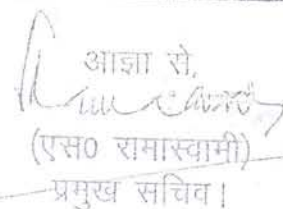 आज्ञा से,
(एस0 रामास्वामी)
प्रमुख सचिव।